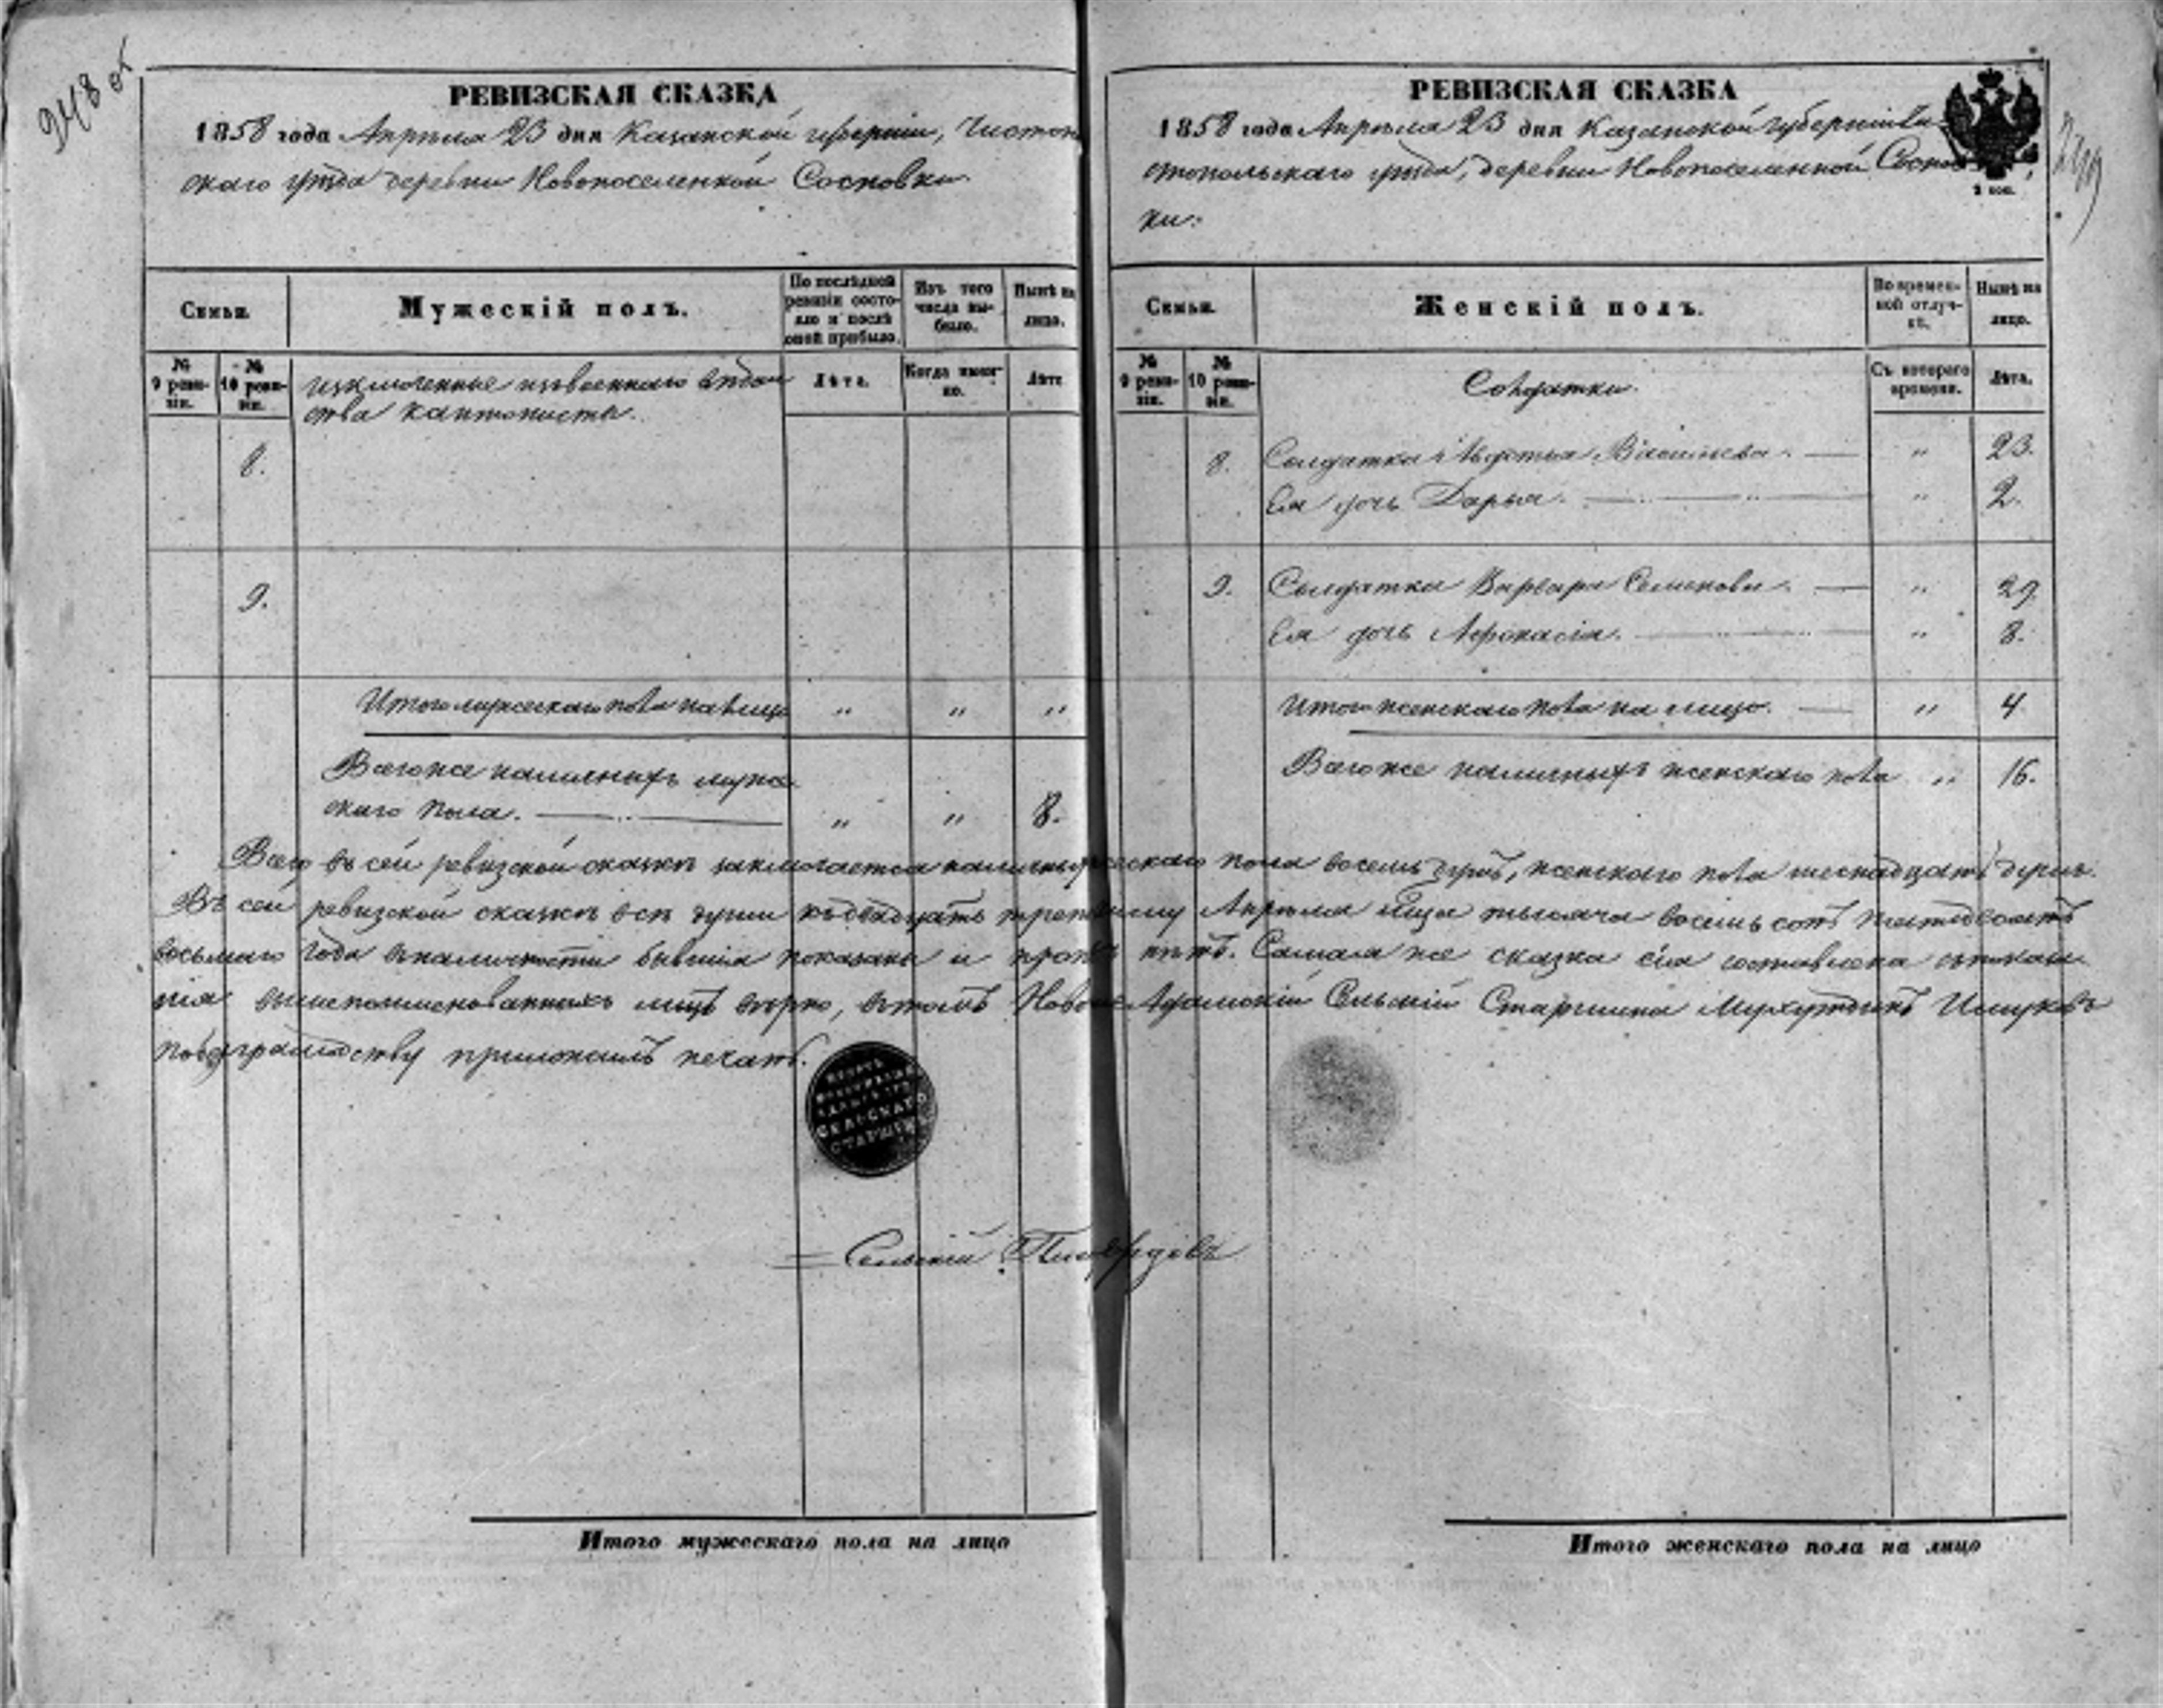 248 об
РЕВИЗСКАЯ СКАЗКА
1858 года Апрѣля 23 дня Казанской губерніи, Чистополь
скаго уѣзда деревни Новопоселенной Сосновки
Семьи.
Мужескій полъ.
По послѣдней ревизіи состояло и послѣ оной прибыло.
Изъ того числа выбыло.
Нынѣ на лицо.
№ 9 ревизіи.
№ 10 ревизіи.
исключенные изъ военнаго вѣдом
ства кантонисты.
Лѣта.
Когда именно.
Лѣта
8.
9.
Итого мужескаго пола на лицо " " "
Всего же наличныхъ муже
скаго пола. " " 8.
РЕВИЗСКАЯ СКАЗКА
1858 года Апрѣля 23 дня Казанской губерніи Чи
стопольскаго уѣзда, деревни Новопоселенной Соснов
ки.
249
Семьи.
Женскій полъ.
Во временной отлучкѣ.
Нынѣ на лицо.
№ 9 ревизіи.
№ 10 ревизіи.
Солдатки.
Съ котораго времени.
Лѣта.
8. Солдатка Авдотья Васильева. " 23.
Ея дочь Дарья. " 2.
9. Солдатка Варвара Семенова. " 29.
Ея дочь Афонасія. " 8.
Итого женскаго пола на лицо. " 4
Всего же наличныхъ женскаго пола " 16.
Всего въ сей ревизской сказкѣ заключается наличныхъ мужескаго пола восемь душъ, женскаго пола шестнадцать душъ.
Въ сей ревизской сказкѣ всѣ души къ двадцать третьему Апрѣля мѣсяца тысяча восемь сотъ пятьдесятъ
восьмаго года въ наличности бывшія показаны и нѣтъ. Самая же сказка сія составлена
вышепоименованныхъ лицъ вѣрно, въ томъ Ново Адамскій Сельскій Старшина Исхуковъ
приложилъ печать.
СЕЛЬСКАГО
СТАРШИНЫ
Сельскій
Итого мужескаго пола на лицо
Итого женскаго пола на лицо